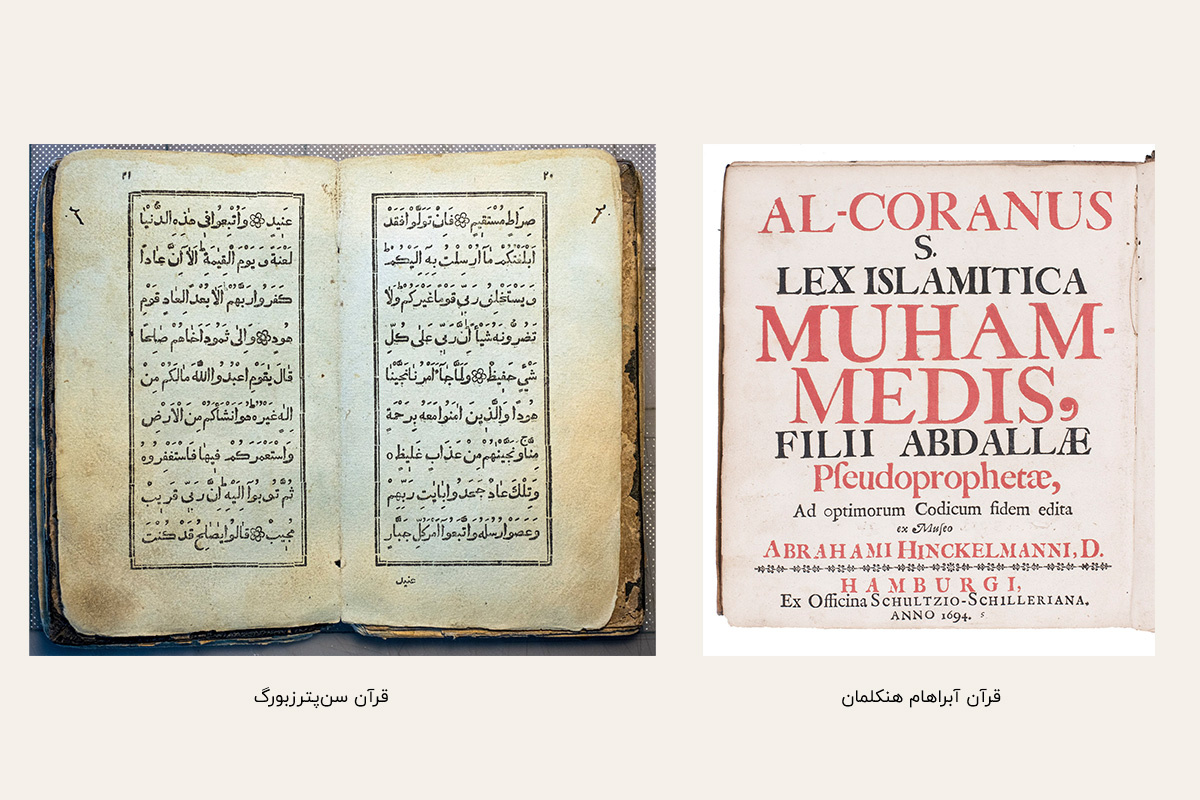 AL-CORANUS
S.
LEX ISLAMITICA
MUHAM-
MEDIS,
FILII ABDALLÆ
Pſeudoprophetæ,
Ad optimorum Codicum fidem edita
ex Muſeo
ABRAHAMI HINCKELMANNI, D.
HAMBURGI,
Ex Officina SCHULTZIO-SCHILLERIANA.
ANNO 1694.
قرآن آبراهام هنکلمان
٢٠
صِرَاطٍ مُسْتَقِيمٍ فَاِنْ تَوَلَّوْا فَقَدْ
اَبْلَغْتُكُمْ مَا اُرْسِلْتُ بِهِ اِلَيْكُمْ
وَيَسْتَخْلِفُ رَبِّى قَوْمًا غَيْرَكُمْ وَلَا
تَضُرُّونَهُ شَيْأً اِنَّ رَبِّى عَلَى كُلِّ
شَيْءٍ حَفِيظٌ وَلَمَّا جَاءَ اَمْرُنَا نَجَّيْنَا
هُودًا وَالَّذِينَ اٰمَنُوا مَعَهُ بِرَحْمَةٍ
مِنَّا وَنَجَّيْنٰهُمْ مِنْ عَذَابٍ غَلِيظٍ
وَتِلْكَ عَادٌ جَحَدُوا بِاٰيَاتِ رَبِّهِمْ
وَعَصَوْا رُسُلَهُ وَاتَّبَعُوا اَمْرَ كُلِّ جَبَّارٍ
عنيد
٢١
عَنِيدٍ وَاُتْبِعُوا فِى هٰذِهِ الدُّنْيَا
لَعْنَةً وَيَوْمَ الْقِيٰمَةِ اَلَا اِنَّ عَادًا
كَفَرُوا رَبَّهُمْ اَلَا بُعْدًا لِعَادٍ قَوْمِ
هُودٍ وَاِلَى ثَمُودَ اَخَاهُمْ صَالِحًا
قَالَ يٰقَوْمِ اعْبُدُوا اللّٰهَ مَا لَكُمْ مِنْ
اِلٰهٍ غَيْرُهُ هُوَ اَنْشَاَكُمْ مِنَ الْاَرْضِ
وَاسْتَعْمَرَكُمْ فِيهَا فَاسْتَغْفِرُوهُ
ثُمَّ تُوبُوا اِلَيْهِ اِنَّ رَبِّى قَرِيبٌ
مُجِيبٌ قَالُوا يٰصَالِحُ قَدْ كُنْتَ
قرآن سن‌پترزبورگ